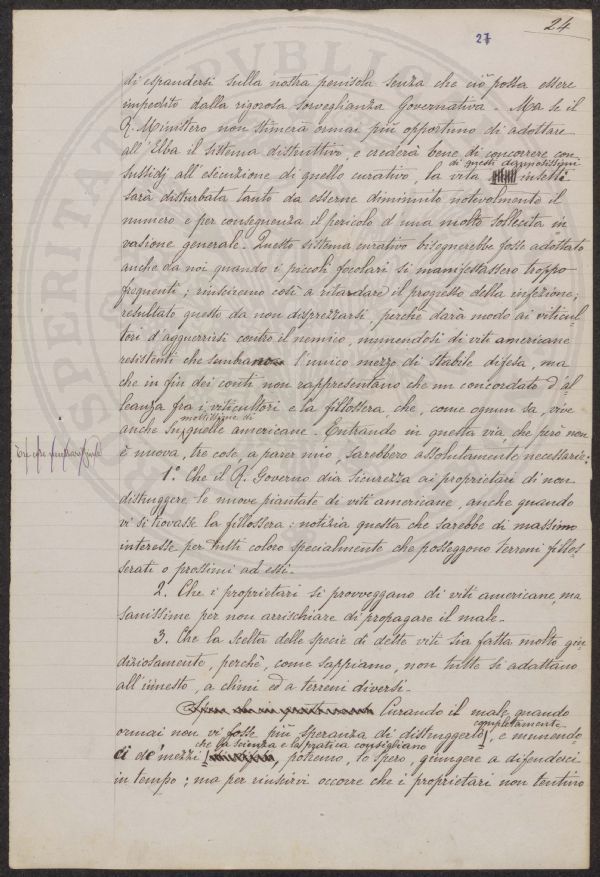 24
27
di espandersi sulla nostra penisola senza che ciò possa essere
impedito dalla rigorosa sorveglianza Governativa. Ma se il
R. Ministero non stimerà ormai più opportuno di adottare
all'Elba il sistema distruttivo, e crederà bene di concorrere con
di questi dannosissimi
sussidj all'esecuzione di quello curativo, la vita insetti
sarà disturbata tanto da esserne diminuito notevolmente il
numero e per conseguenza il pericolo d'una molto sollecita in
vasione generale. Questo sistema curativo bisognerebbe fosse adottato
anche da noi quando i piccoli focolari si manifestassero troppo
frequenti; riusciremo così a ritardare il progresso della infezione;
resultato questo da non disprezzarsi perchè darà modo ai viticul-
tori d'agguerrirsi contro il nemico, munendosi di viti americane
resistenti che sembrano l'unico mezzo di stabile difesa, ma
che in fin dei conti non rappresentano che un concordato d'al
leanza fra i viticultori e la fillossera, che, come ognun sa, vive
moltissime di
anche su quelle americane. Entrando in questa via, che però non
è nuova, tre cose, a parer mio, sarebbero assolutamente necessarie:
1.° Che il R. Governo dia sicurezza ai proprietari di non
distruggere le nuove piantate di viti americane, anche quando
vi si trovasse la fillossera: notizia questa che sarebbe di massimo
interesse per tutti coloro specialmente che posseggono terreni fillos
serati o prossimi ad essi.
2. Che i proprietari si provveggano di viti americane, ma
sanissime per non arrischiare di propagare il male.
3. Che la scelta delle specie di dette viti sia fatta molto giu
diziosamente, perchè, come sappiamo, non tutte si adattano
all'innesto, a climi ed a terreni diversi.
Curando il male, quando
completamente
ormai non vi fosse più speranza di distruggerlo, e munendo
che la scienza e la pratica consigliano
ci de' mezzi, potremo, lo spero, giungere a difenderci
in tempo; ma per riuscirvi occorre che i proprietari non tentino